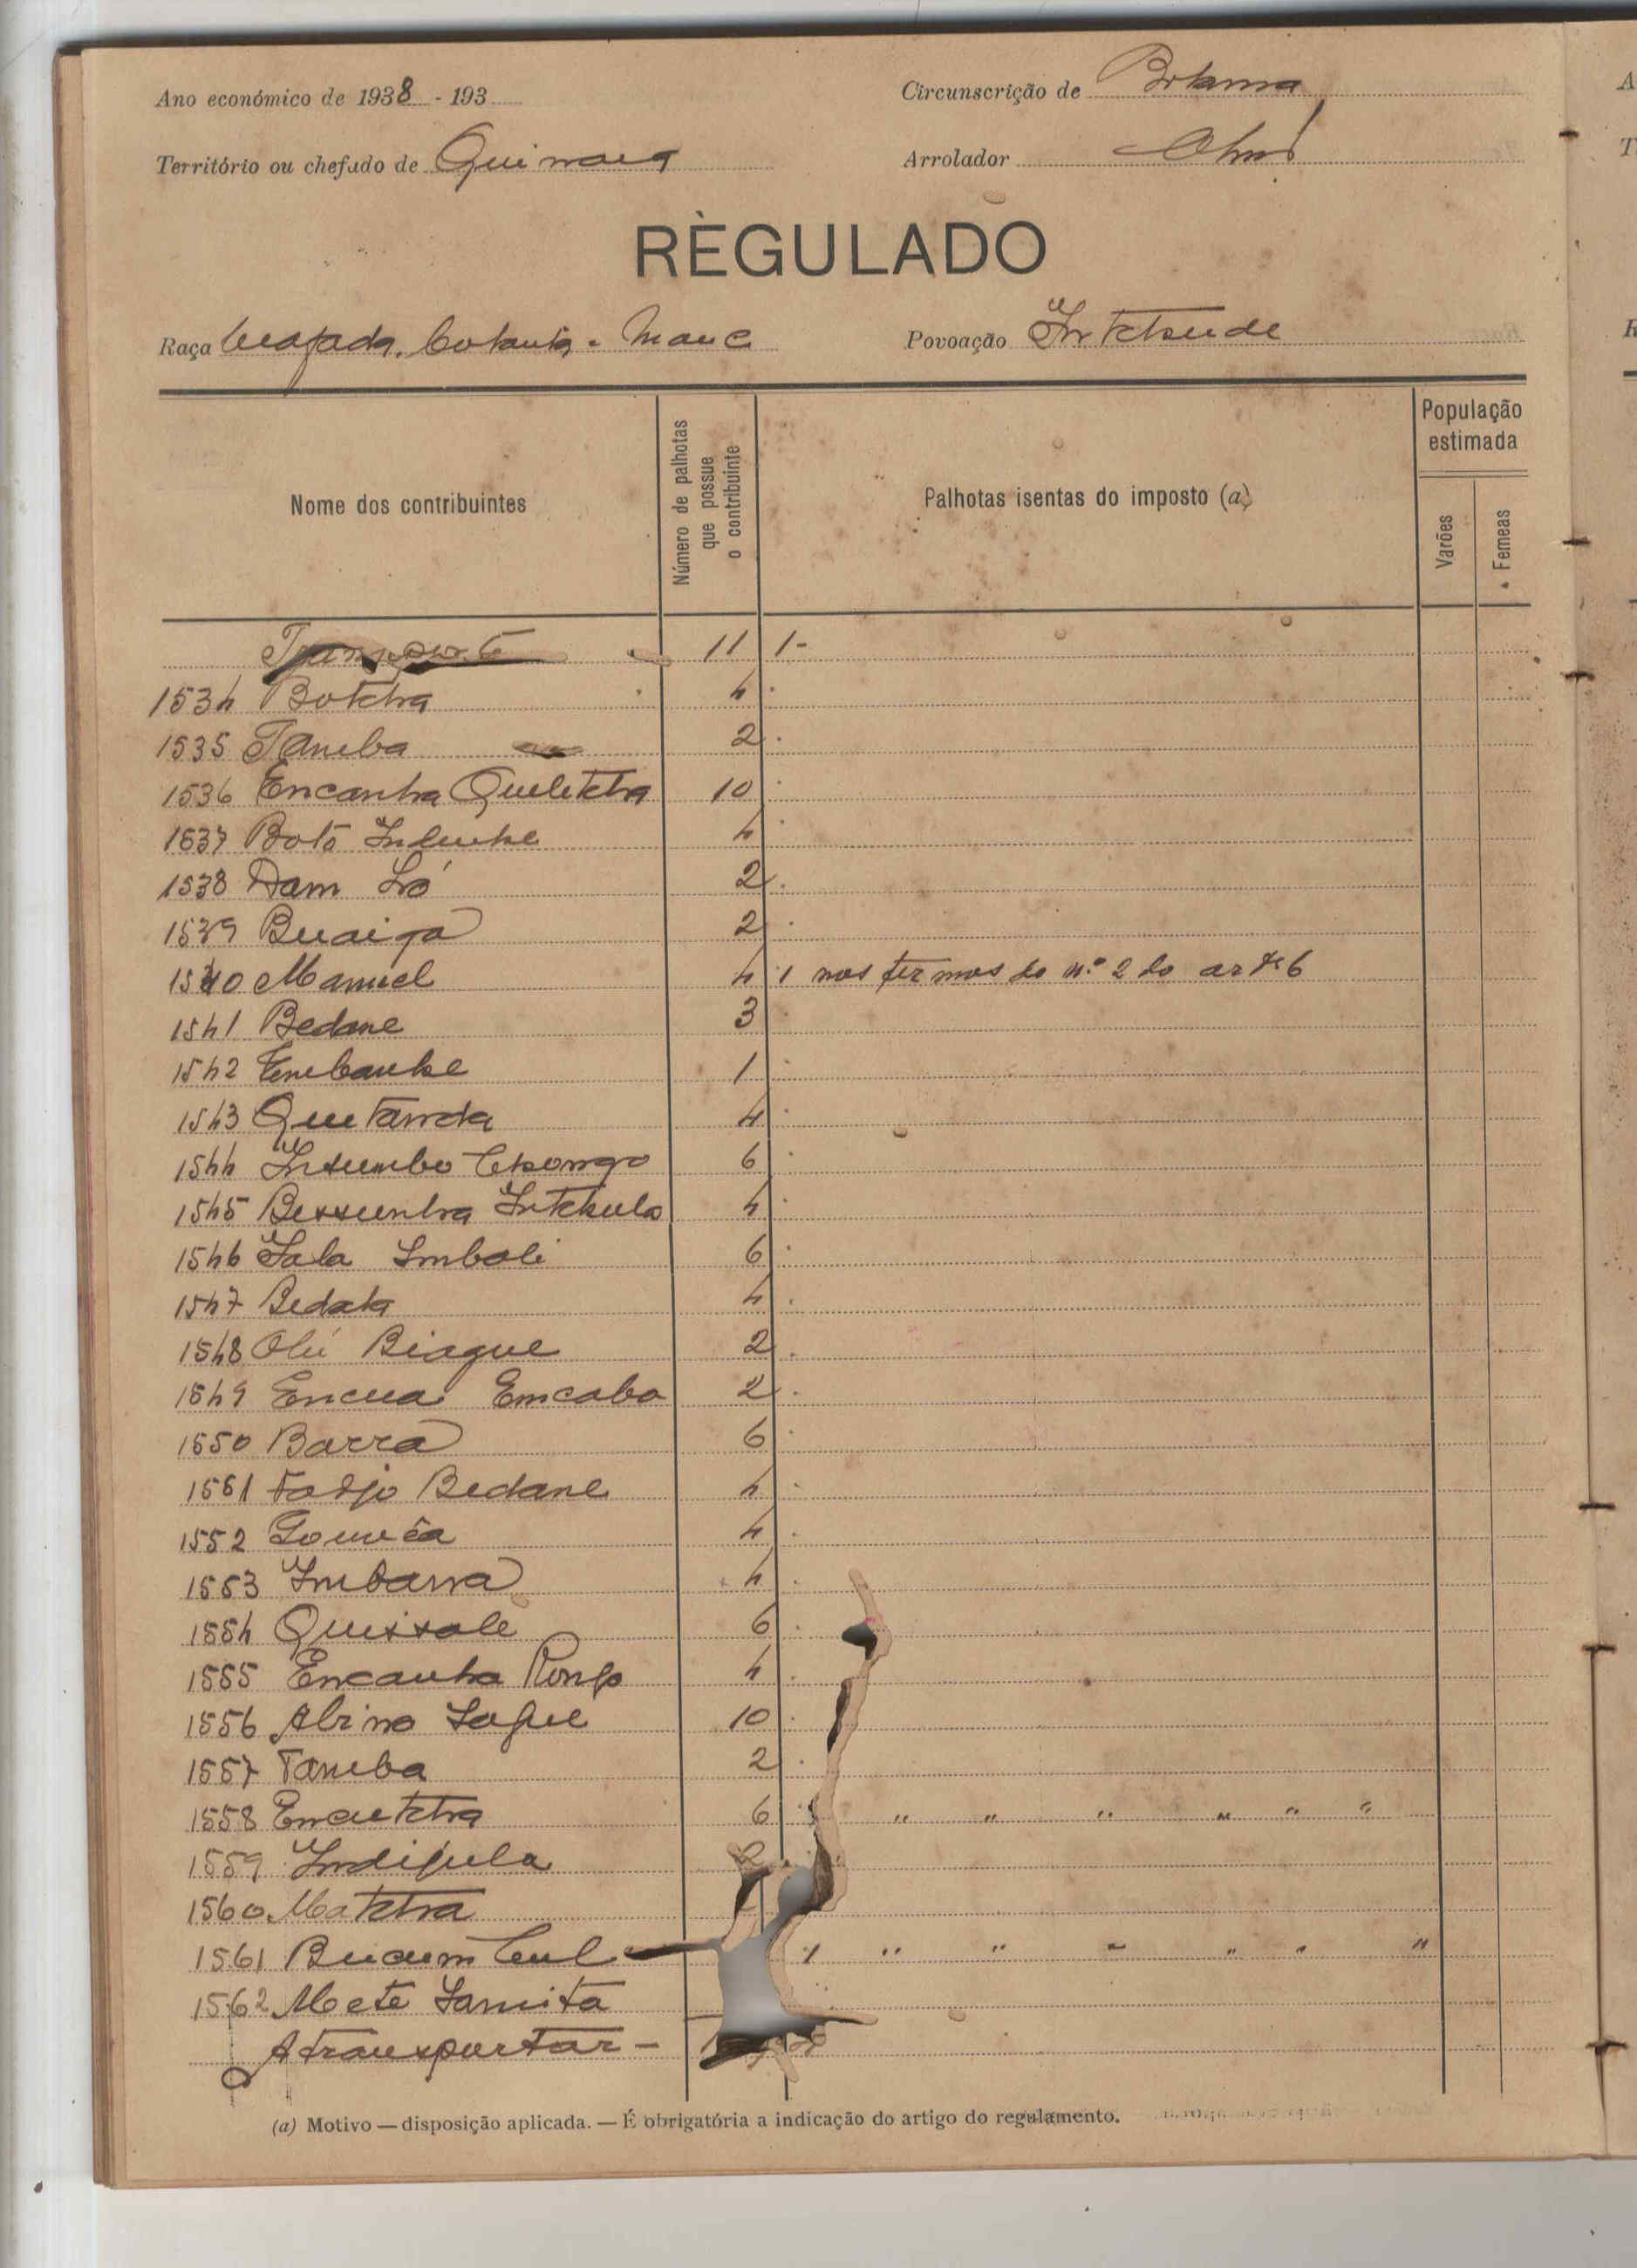 Ano económico de 1938 - 193
Circunscrição de Bolama
Território ou chefado de Quinara
Arrolador
RÈGULADO
Raça Beafada.
Povoação
Nome dos contribuintes
Número de palhotas que possue o contribuinte
Palhotas isentas do imposto (a)
População estimada
Varões
Femeas
Transporte 11 1-
1534 Botcha 4
1535 Tamba 2
1536 Encanha Queletcha 10
1537 Botô 4
1538 Dam Ló 2
1539 Buaiga 2
1540 Manuel 4 1 nos termos do nº 2 do artº 6
1541 Bedane 3
1542 1
1543 Quetamda 4
1544 6
1545 Bessunha Intchula 4
1546 Sala Imbali 6
1547 Bedata 4
1548 Olú Biague 2
1549 Encua Emcaba 2
1550 Barra 6
1551 Fadjo Bedane 4
1552 Gouvêa 4
1553 Imbana 4
1554 Quissale 6
1555 Encanha 4
1556 10
1557 Tamba 2
1558 Encutcha 6 " " " " " "
1559 2
1560 Matcha
1561 1 " " " " " "
1562
A transportar -
(a) Motivo — disposição aplicada. — É obrigatória a indicação do artigo do regulamento.